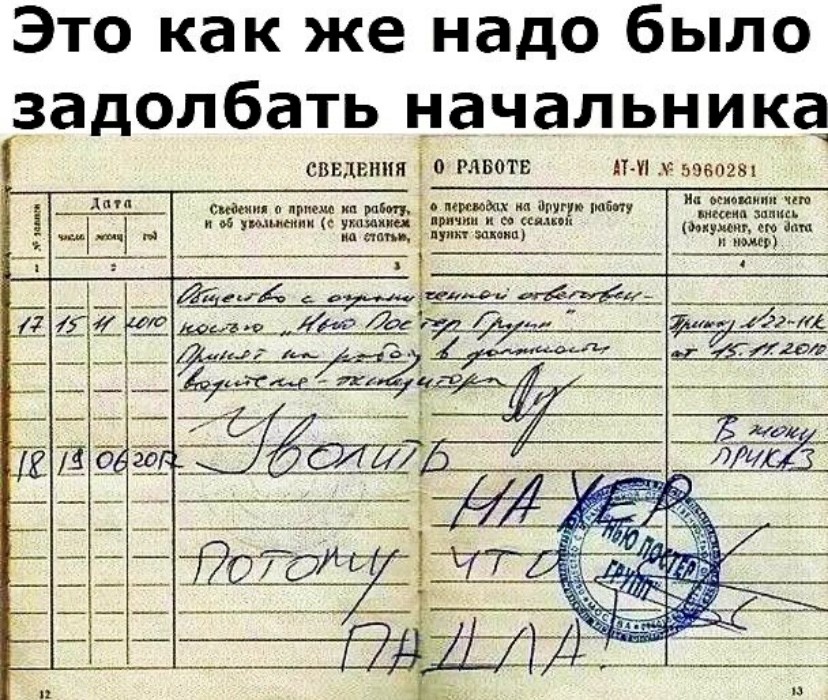 Это как же надо было
задолбать начальника
СВЕДЕНИЯ О РАБОТЕ АТ-VI № 5960281
№ записи
Дата
число месяц год
Сведения о приеме на работу, о переводах на другую работу
и об увольнении (с указанием причин и со ссылкой
на статью, пункт закона)
На основании чего
внесена запись
(документ, его дата
и номер)
1 2 3 4
Общество с ограниченной ответствен-
17 15 11 2010 ностью „Нью Постер Групп" Приказ №22-НК
Принят на работу в должности от 15.11.2010
водителя-экспедитора
В жопу
18 19 06 2012 Уволить ПРИКАЗ
НАХЕР
ПОТОМУ ЧТО
ПАДЛА!
НЬЮ ПОСТЕР
ГРУПП
МОСКВА
12 13